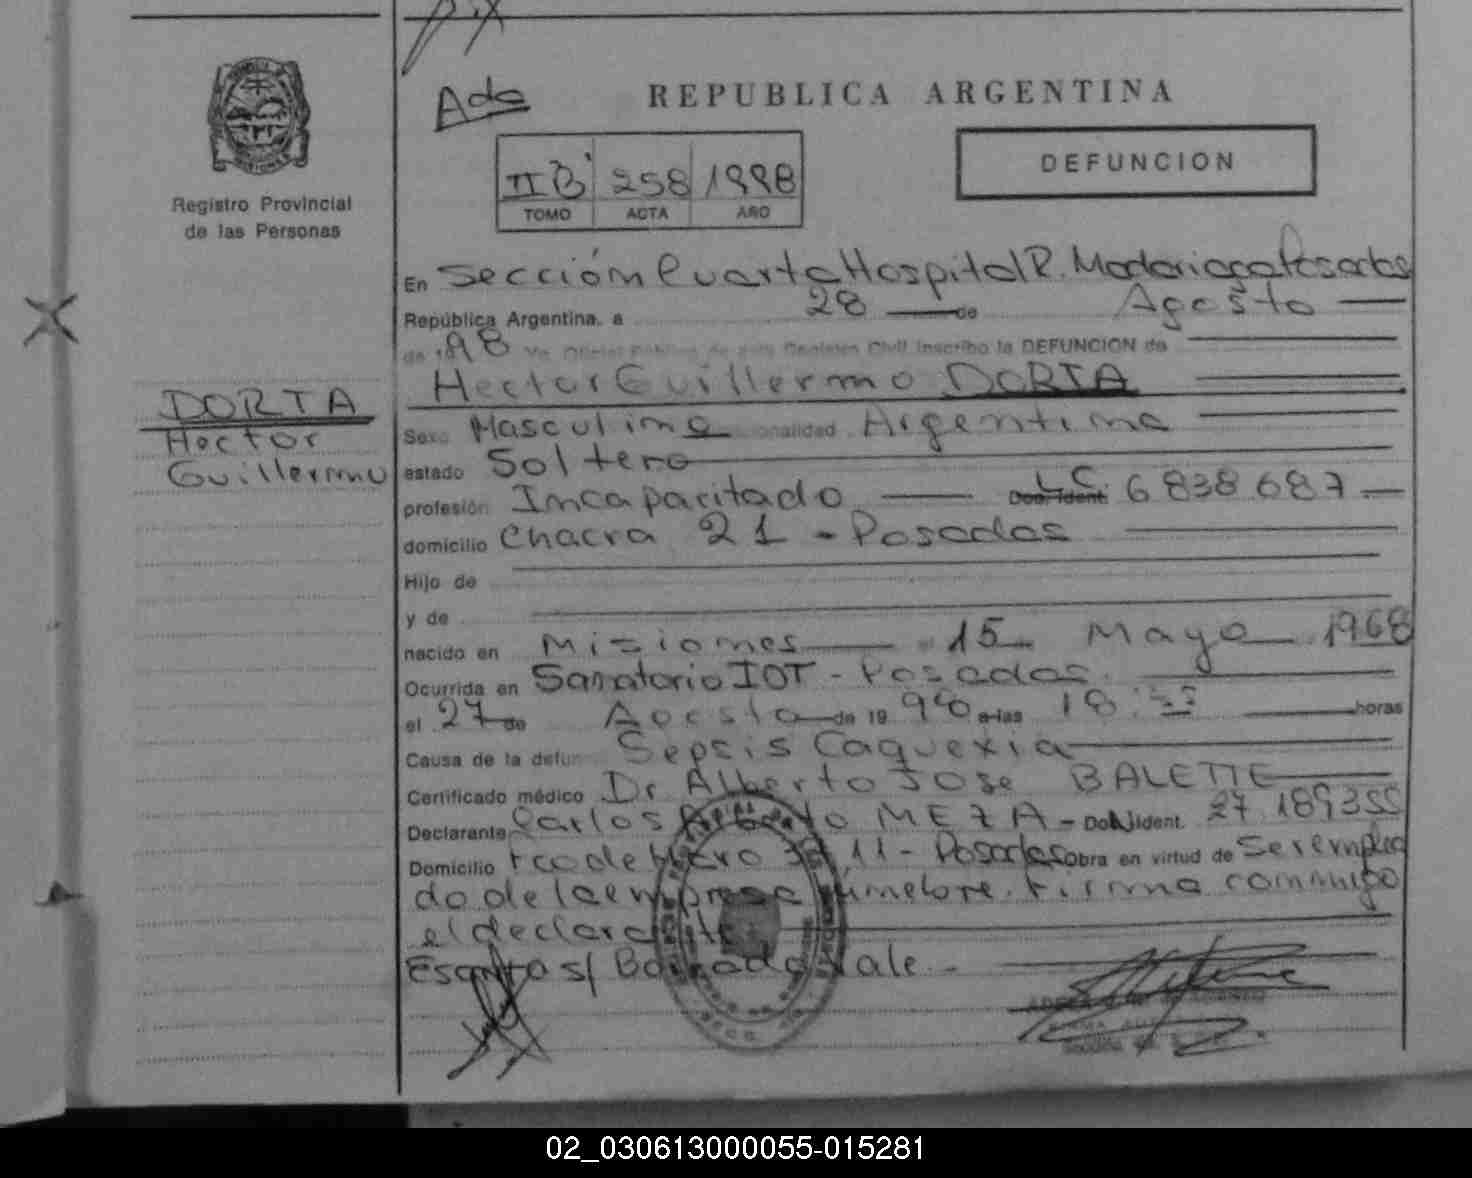 Ada
REPUBLICA ARGENTINA
DEFUNCION
II B 258 1998
TOMO ACTA AÑO
Registro Provincial
de las Personas
En Sección Cuarta Hospital R. Madariaga Posadas
República Argentina, a 28 de Agosto
de 1998 Yo Oficial Público de este Registro Civil inscribo la DEFUNCION de
Hector Guillermo DORTA
DORTA
Hector
Guillermo
Sexo Masculino nacionalidad Argentina
estado Soltero
profesión Incapacitado Doc. Ident. L C. 6838687
domicilio Chacra 21 - Posadas
Hijo de
y de
nacido en Misiones 15 Mayo 1968
Ocurrida en Sanatorio IOT - Posadas.
el 27 de Agosto de 19 98 a las 18: horas
Causa de la defun Sepsis Caquexia
Certificado médico Dr Alberto Jose BALETTE
Declarante Carlos MEZA - Doc. Ident. 27.189355
Domicilio 11 - Posadas obra en virtud de Ser emplea
do de la empresa Firma conmigo
el declarante
Escrito s/ Borrado Vale. -
02_030613000055-015281